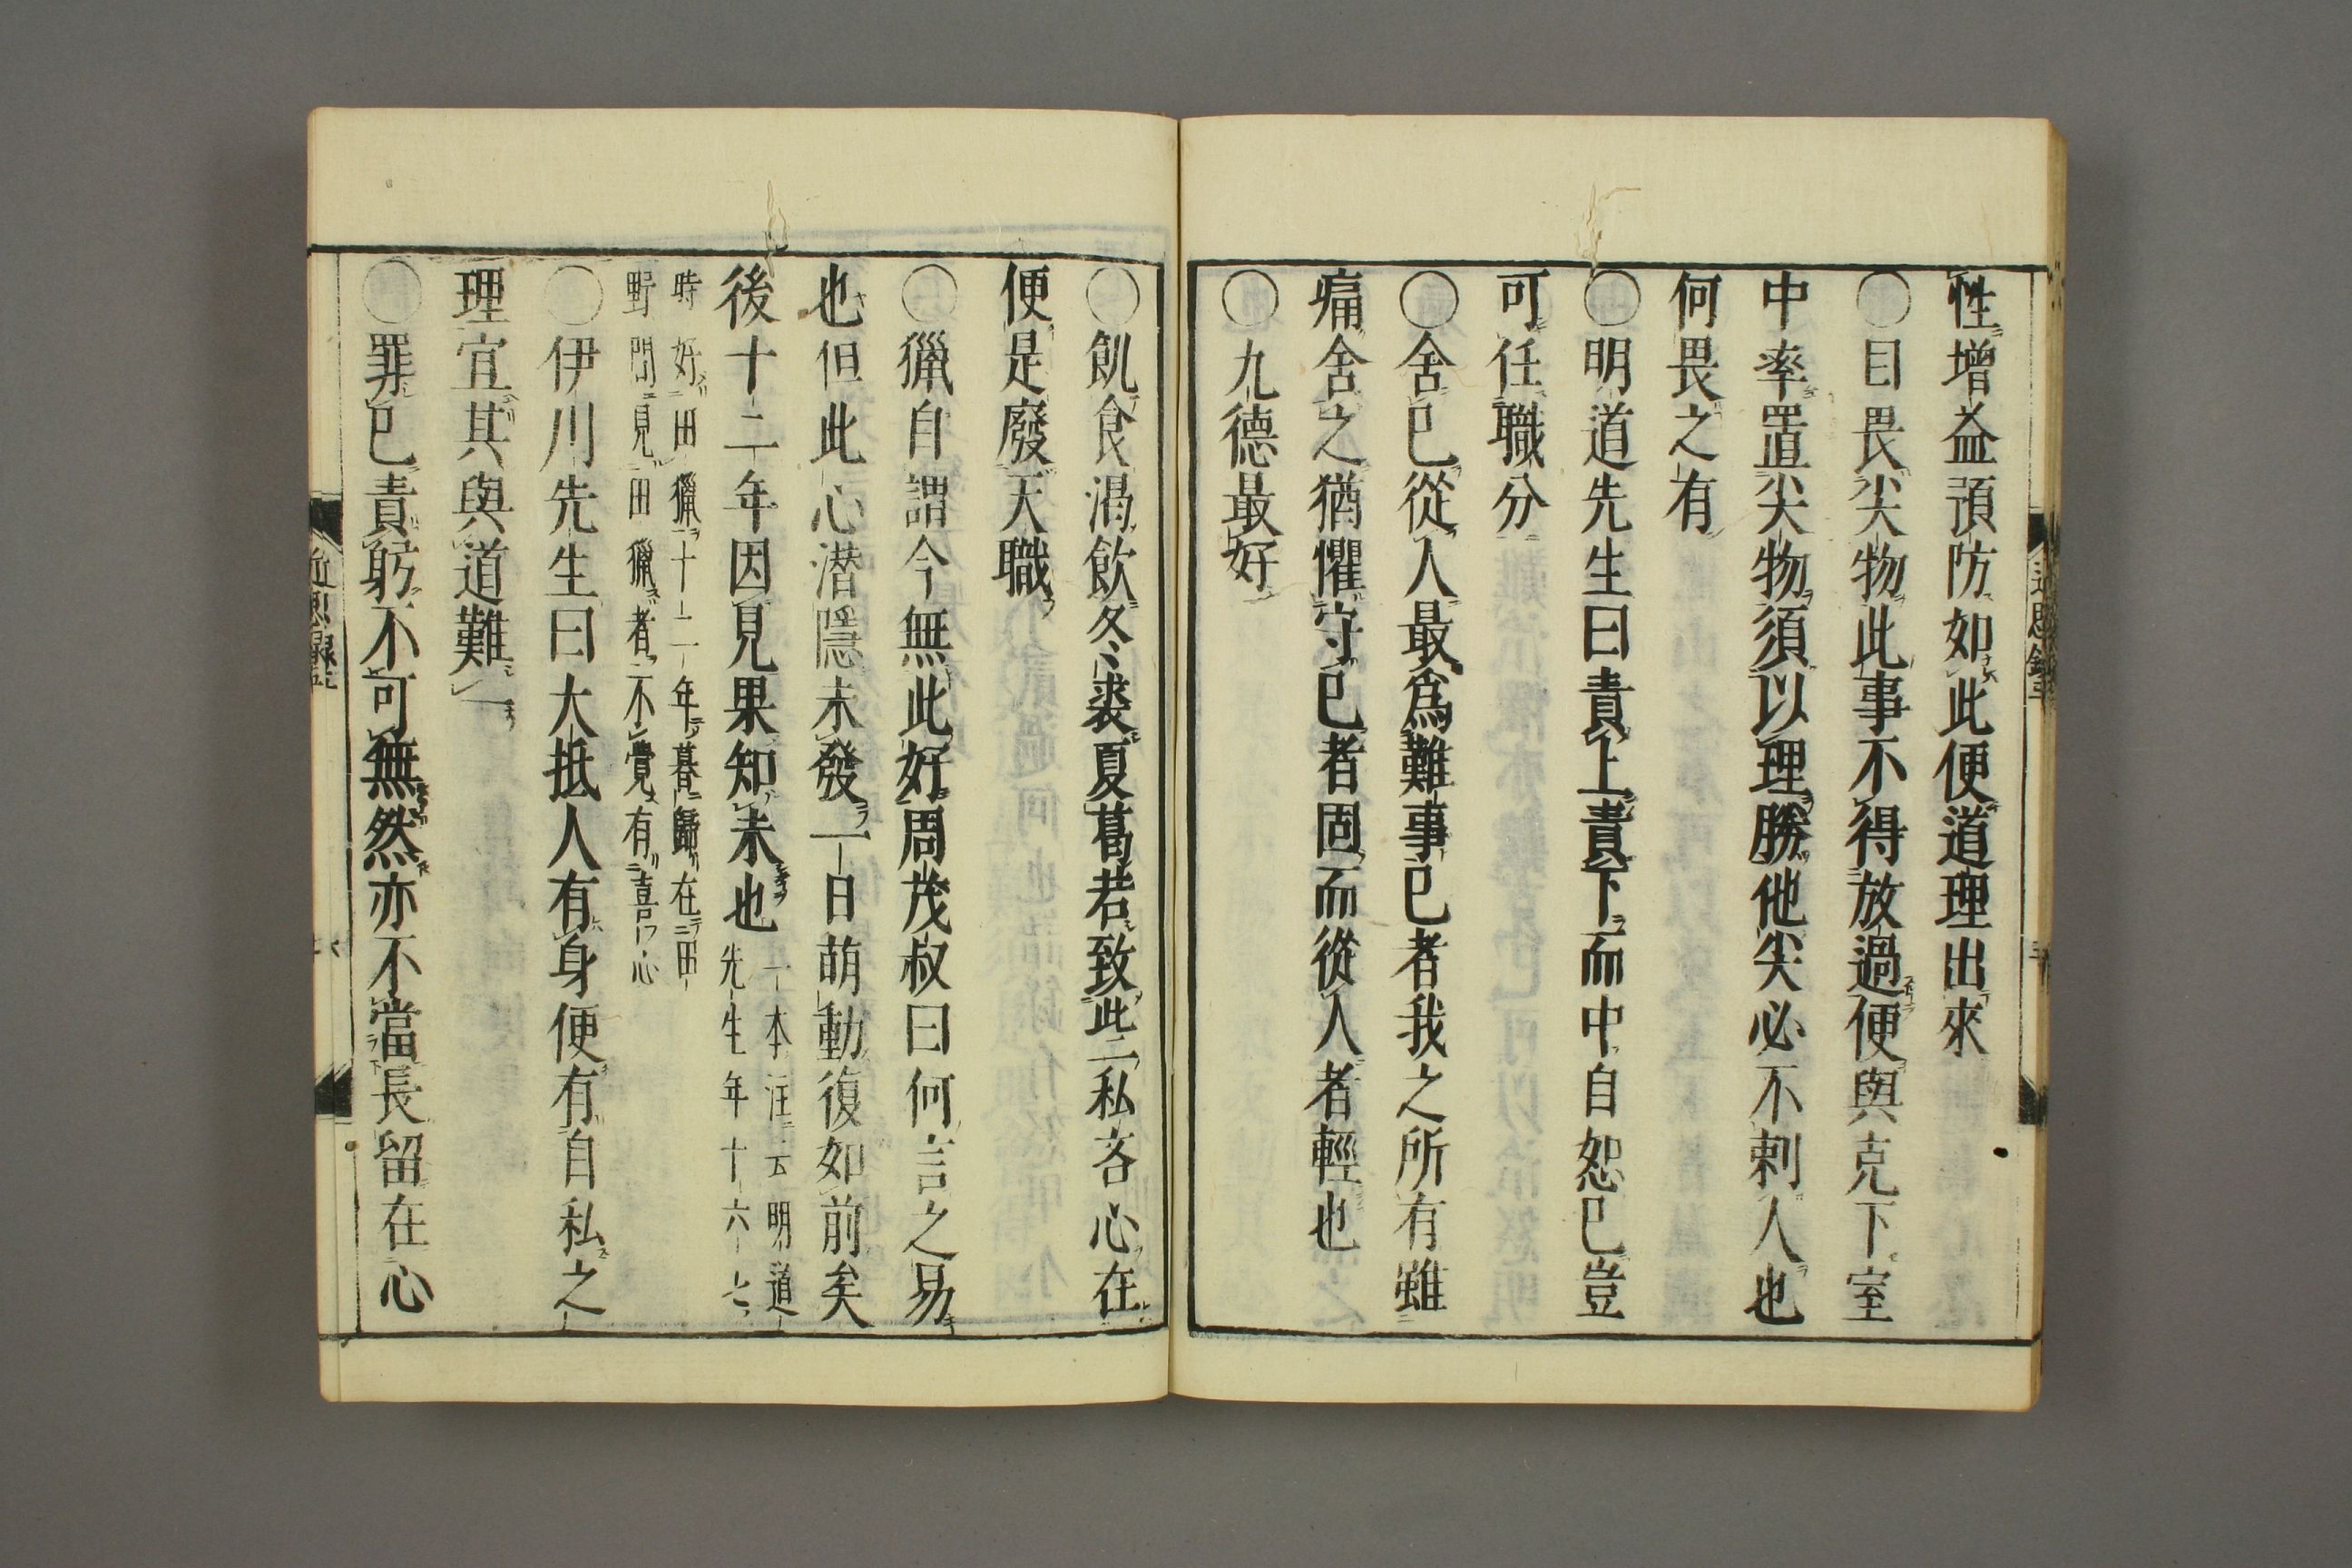 性增益預防如此便道理出來
○目畏尖物此事不得放過便與克下室
中率置尖物須以理勝他尖必不刺人也
何畏之有
○明道先生曰責上責下而中自恕已豈
可任職分
○舍已從人最爲難事已者我之所有雖
痛舍之猶懼守已者固而從人者輕也
○九德最好
○飢食渴飲冬裘夏葛若致此二私吝心在
便是廢天職
○獵自謂今無此好周茂叔曰何言之易
也但此心潛隱未發一日萌動復如前矣
後十二年因見果知未也
一本注云明道
先生年十六七
時好田獵十二年暮歸在田
野間見田獵者不覺有喜心
○伊川先生曰大抵人有身便有自私之
理宜其與道難一
○罪已責躬不可無然亦不當長留在心
近思錄
近思錄